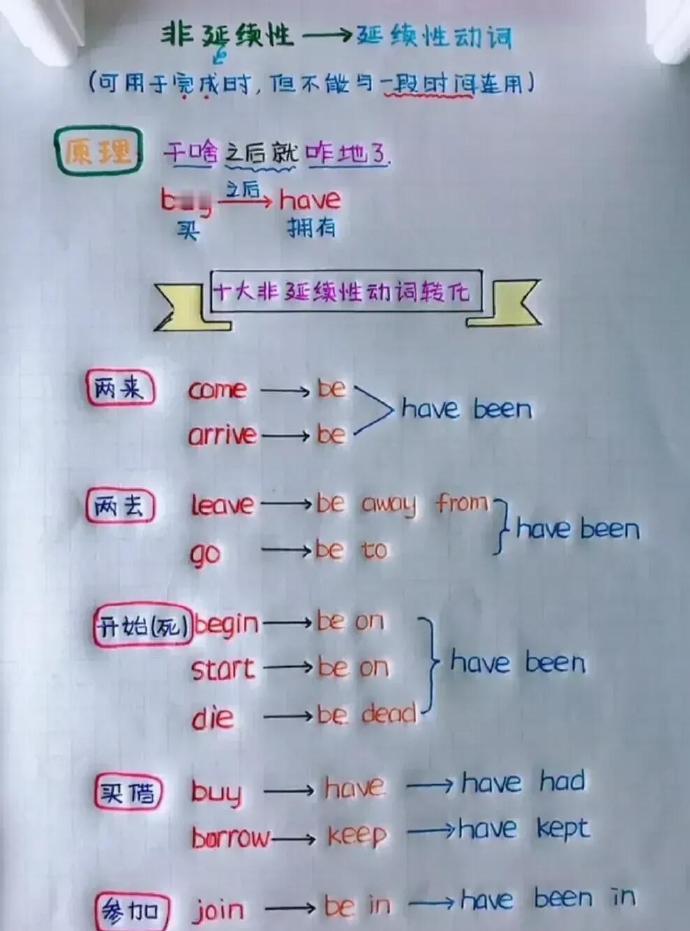 非延续性→延续性动词
(可用于完成时,但不能与一段时间连用)
原理 干啥之后就咋地了.
之后
buy→have
买 拥有
十大非延续性动词转化
两来 come→be
arrive→be
have been
两去 leave→be away from
go→be to
have been
开始(死) begin→be on
start→be on
die→be dead
have been
买借 buy→have→have had
borrow→keep→have kept
参加 join→be in→have been in